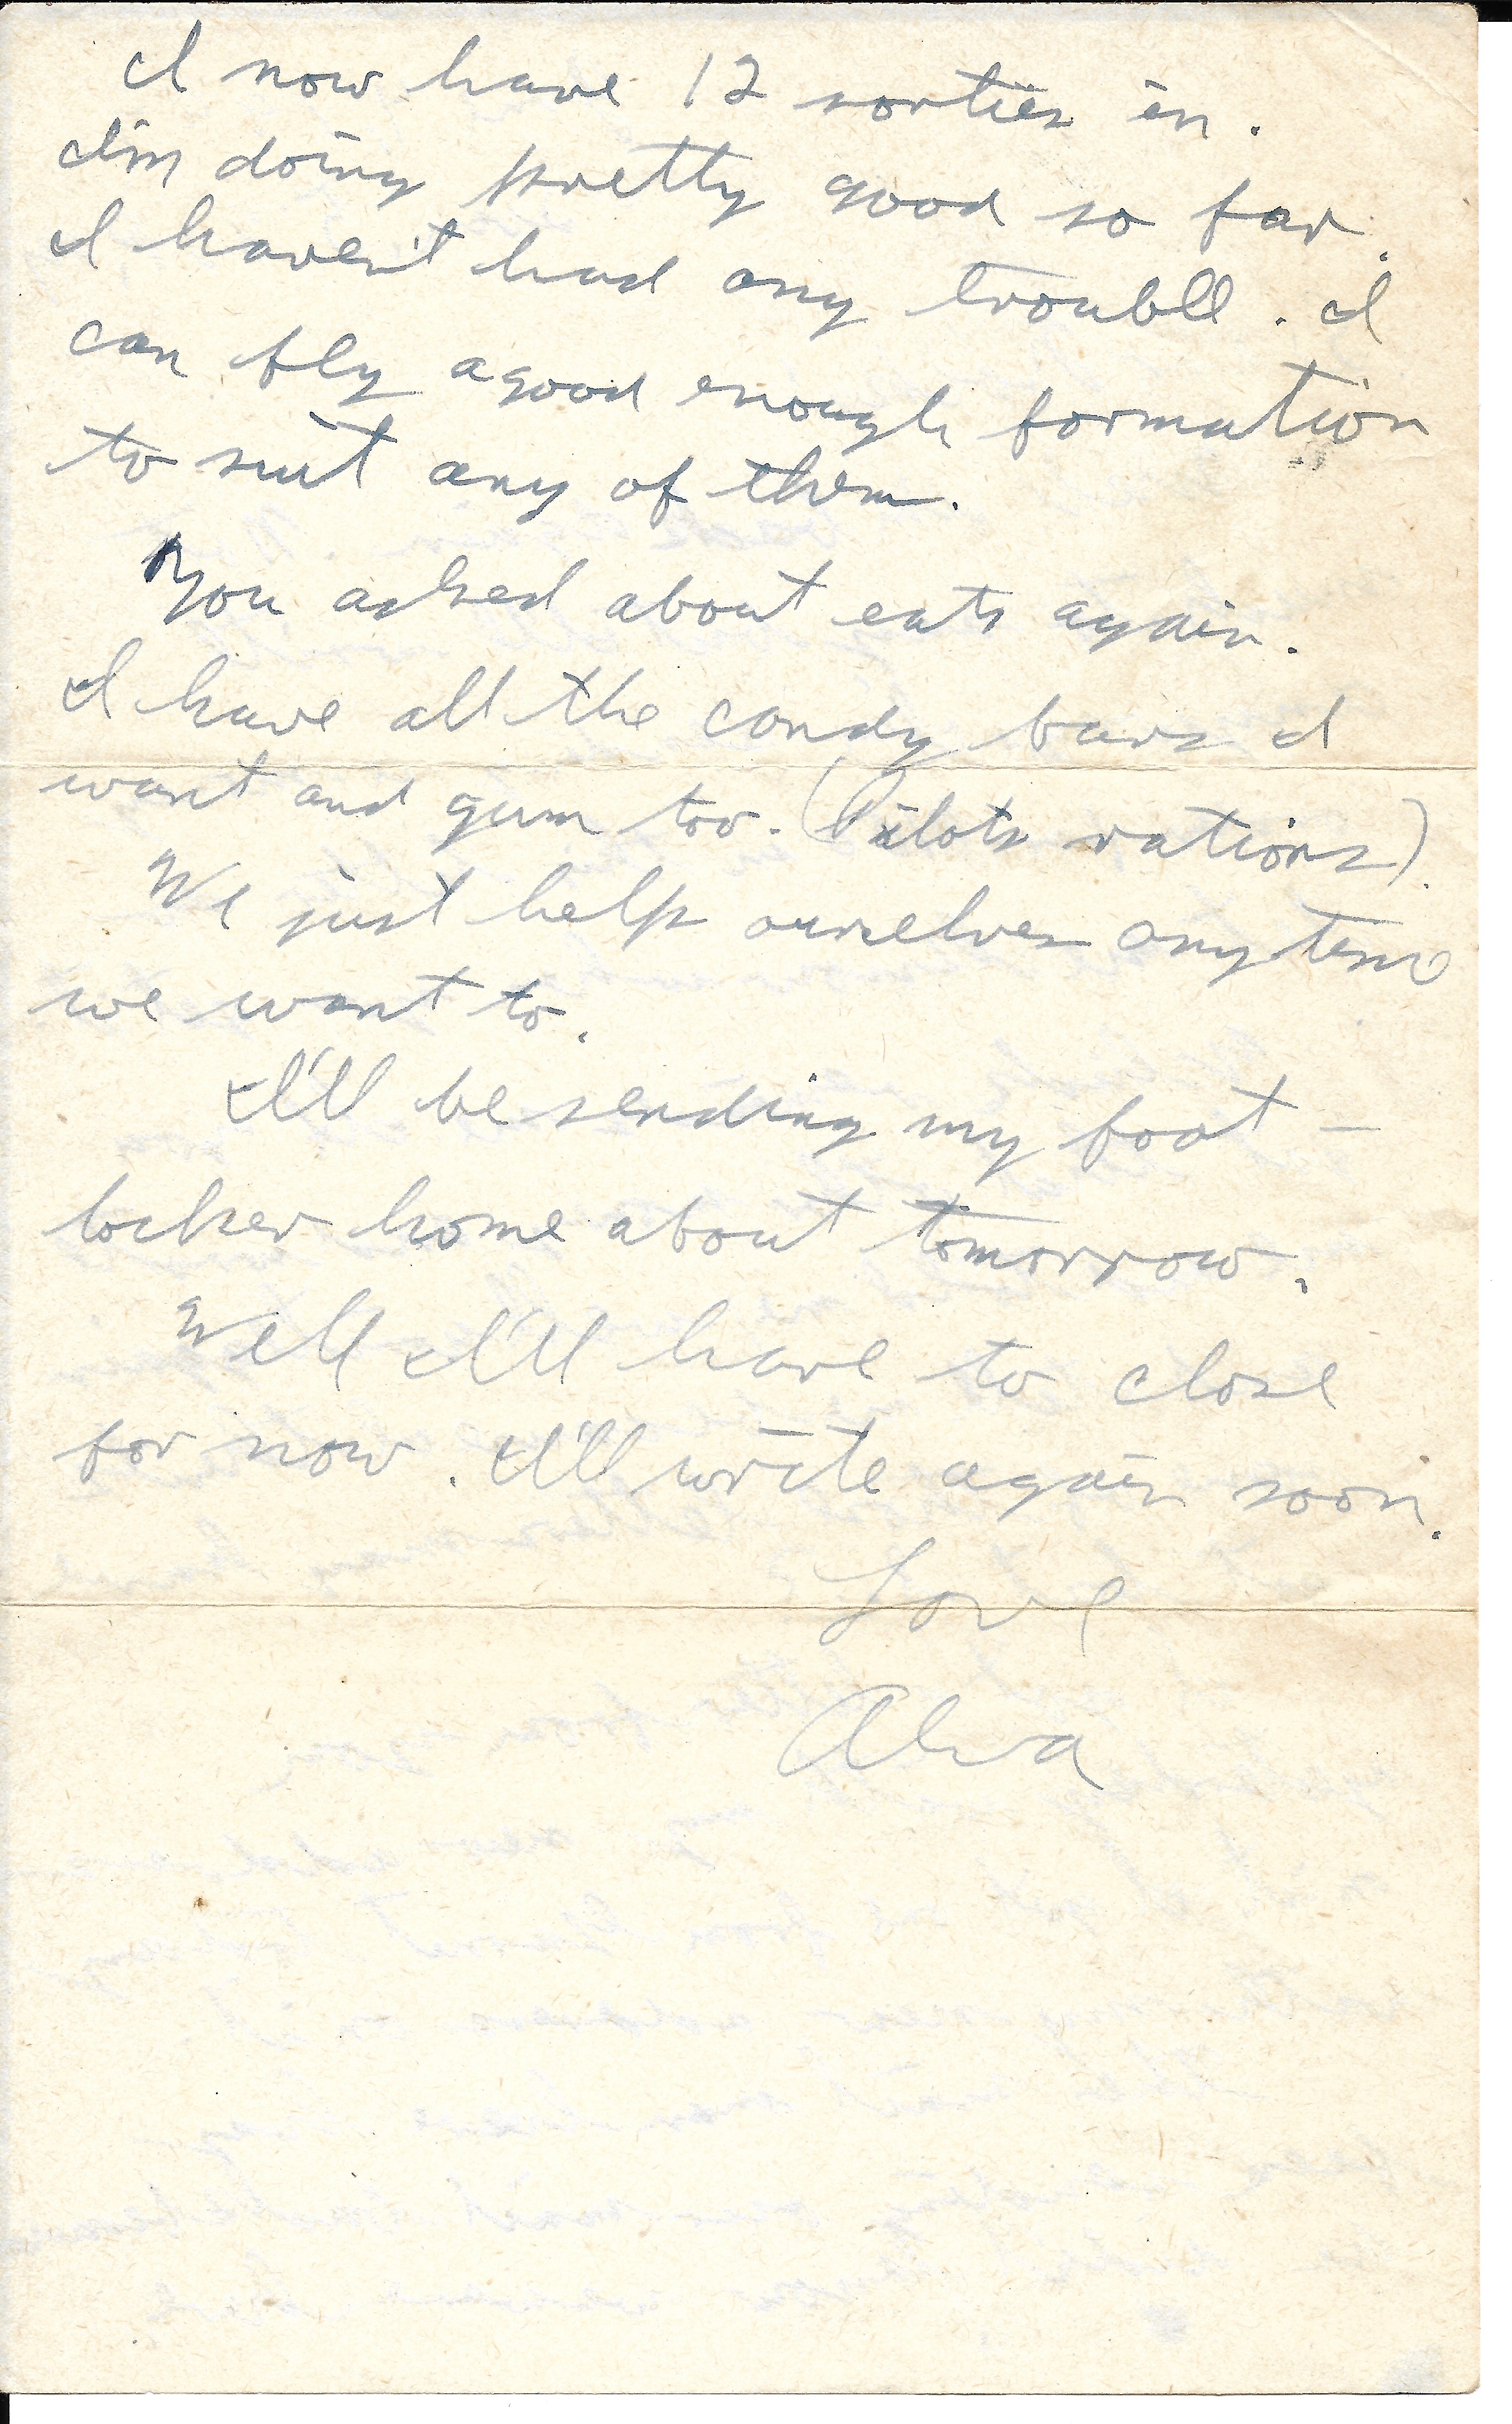 I now have 12 sorties in.
I'm doing pretty good so far.
I haven't had any trouble. I
can fly a good enough formation
to suit any of them.
You asked about eats again.
I have all the candy bars I
want and gum too. (Pilots rations).
We just help ourselves anytime
we want to.
I'll be sending my foot-
locker home about tomorrow.
Well I'll have to close
for now. I'll write again soon.
Love
Alva